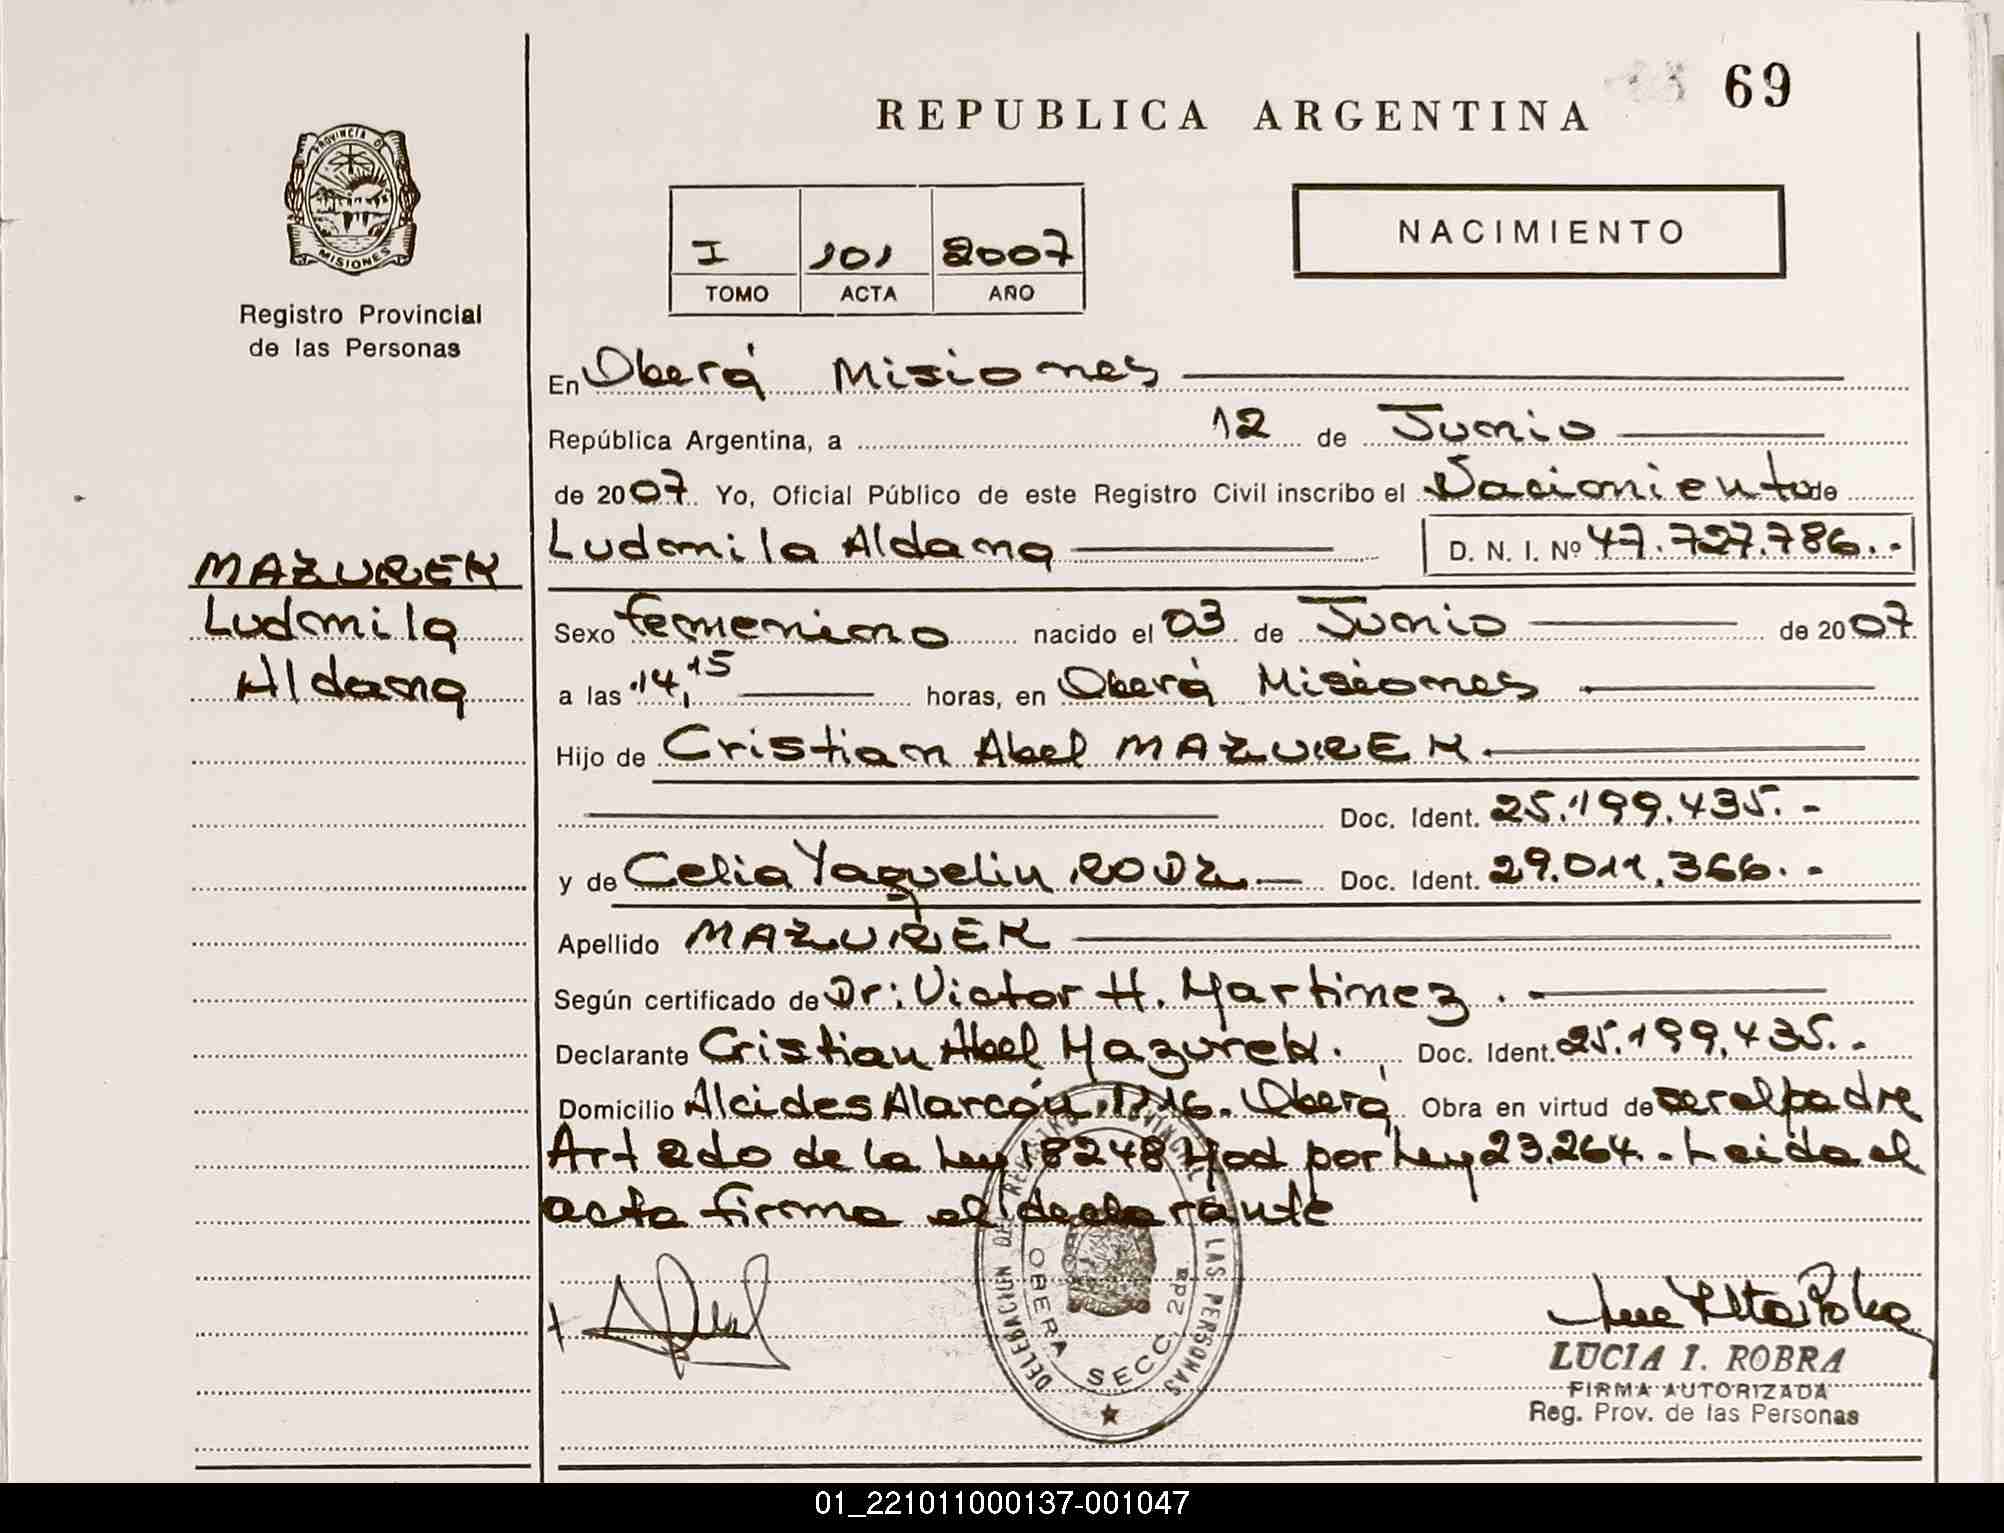 69
REPUBLICA ARGENTINA
PROVINCIA DE
MISIONES
Registro Provincial
de las Personas
NACIMIENTO
I 101 2007
TOMO ACTA AÑO
En Oberá Misiones
República Argentina, a 12 de Junio
de 2007 Yo, Oficial Público de este Registro Civil inscribo el Nacimiento de
Ludmila Aldana D. N. I. Nº 47.727.786.-
MAZUREK
Ludmila
Aldana
Sexo femenino nacido el 03 de Junio de 2007
a las 14,15 horas, en Oberá Misiones
Hijo de Cristian Abel MAZUREK
Doc. Ident. 25.199.435.-
y de Celia Yaquelin Doc. Ident. 29.011.366.-
Apellido MAZUREK
Según certificado de Dr: Victor H. Martinez.
Declarante Cristian Abel Mazurek. Doc. Ident. 25.199.435.-
Domicilio Alcides Alarcón Oberá Obra en virtud de ser el padre
Art 2do de la Ley 18248 Mod por Ley 23.264.- Leida el
acta firma el declarante
DELEGACION DEL REGISTRO PROVINCIAL DE LAS PERSONAS
OBERA SECC. 2da
LUCIA I. ROBRA
FIRMA AUTORIZADA
Reg. Prov. de las Personas
01_221011000137-001047